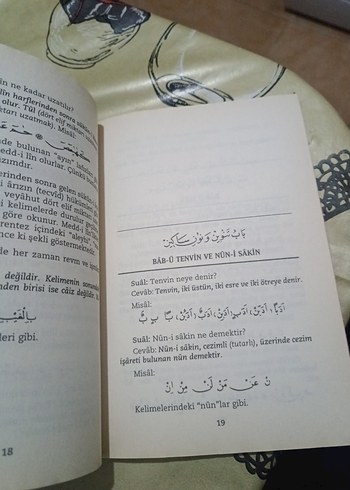 in ne kadar uzatılır?
lîn harflerinden sonra sükûn
olur. Tûl (dört elif miktarı
ktarı uzatmak). Misâl:
nde bulunan "ayın"
medd-i lîn olurlar. Çünkü
zımdır.
erinden sonra gelen sükûn
i ârızın (tecvîd) hükmü
veyâhut dört elif miktarı
kelimelerde durumu
göre okunur. Medd-i
rentez içindeki "aleyhi",
nce ki şekli göstermektedir.
de her zaman revm ve
değildir. Kelimenin sonunda
nden birisi ise câiz değildir.
eri gibi.
18
بَابُ تَنْوِينٍ وَنُونِ سَاكِنٍ
BÂB-Ü TENVİN VE NÛN-İ SÂKİN
Suâl: Tenvin neye denir?
Cevâb: Tenvin, iki üstün, iki esre ve iki ötreye denir.
Misâl:
Suâl: Nûn-i sâkin ne demektir?
Cevâb: Nûn-i sâkin, cezimli (tutarlı), üzerinde cezim
işâreti bulunan nûn demektir.
Misâl:
نْ عَنْ مَنْ لَنْ مِنْ اِنْ
Kelimelerindeki "nûn"lar gibi.
19